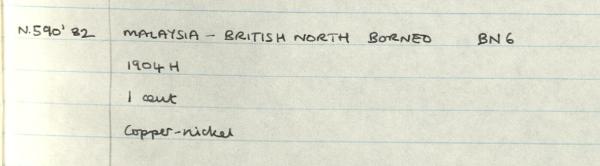 N.590' 82 MALAYSIA - BRITISH NORTH BORNEO BN 6
1904 H
1 cent
Copper-nickel